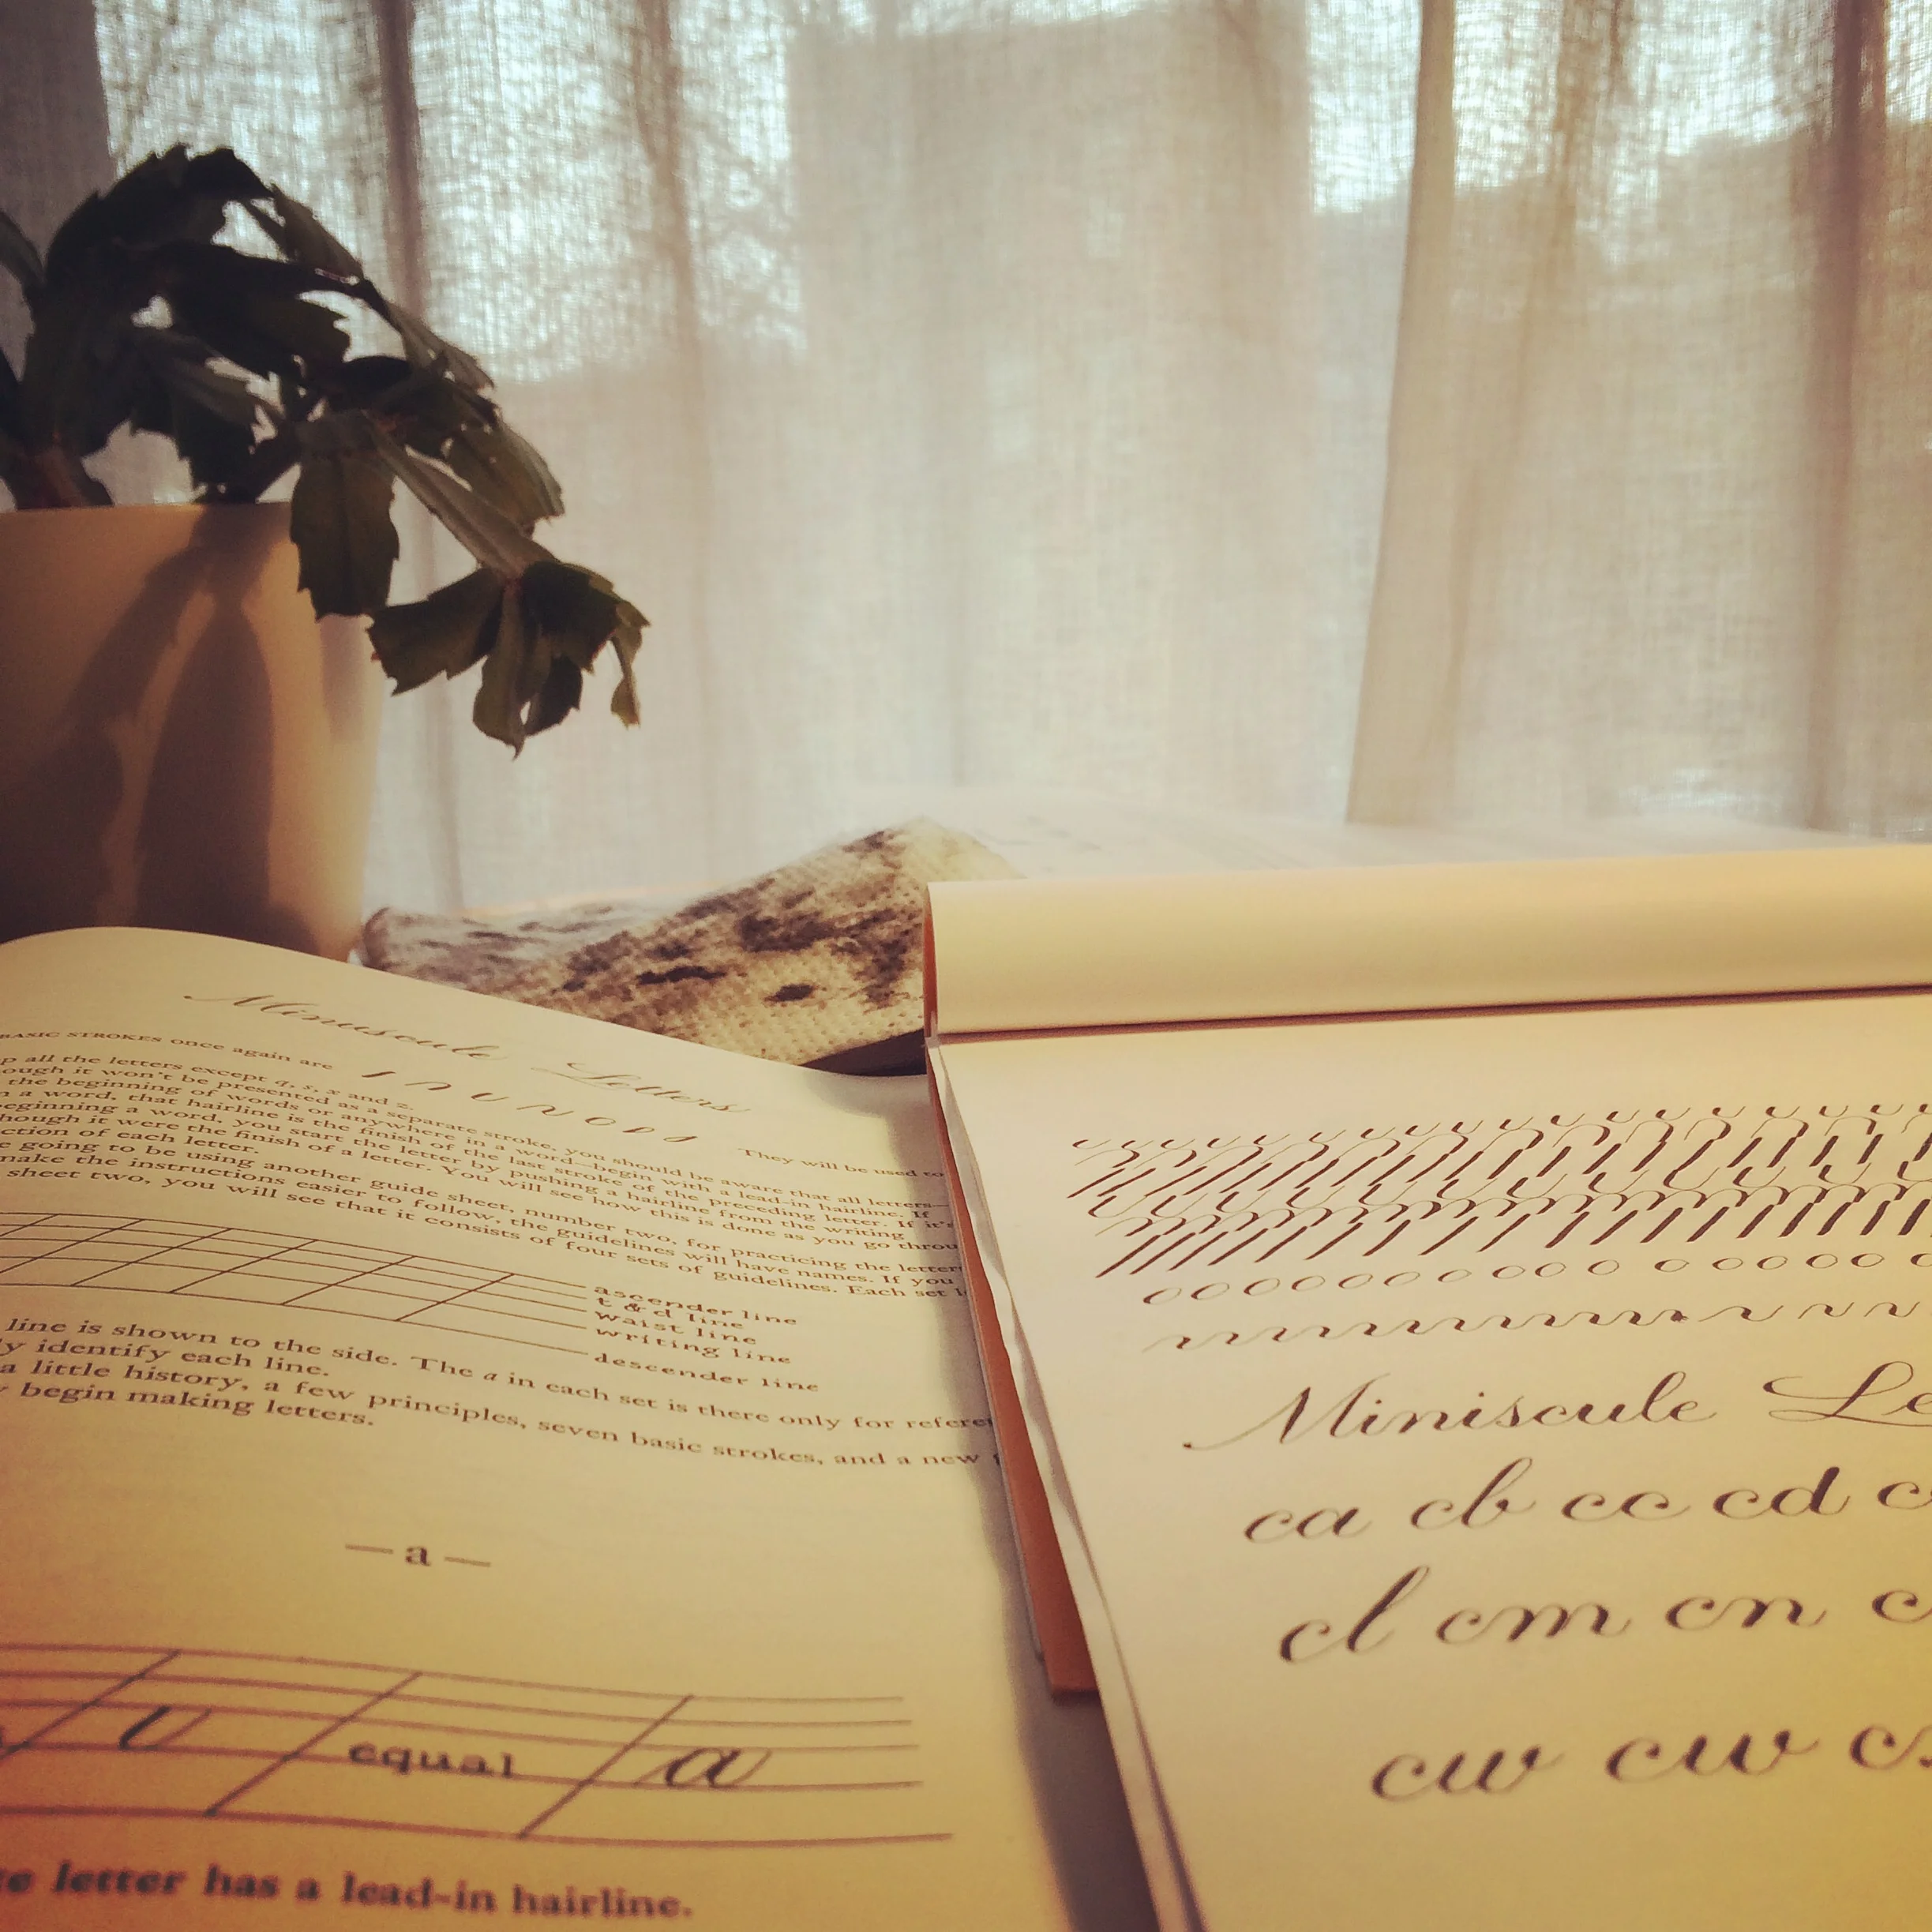 Minuscule Letters
BASIC STROKES once again are
They will be used to
p all the letters except q, s, x and z.
ough it won't be presented as a separate stroke, you should be aware that all letters—
the beginning of words or anywhere in a word—begin with a lead-in hairline. If
n a word, that hairline is the finish of the last stroke of the preceding letter. If it's
eginning a word, you start the letter by pushing a hairline from the writing
hough it were the finish of a letter. You will see how this is done as you go throu
ction of each letter.
e going to be using another guide sheet, number two, for practicing the letter
make the instructions easier to follow, the guidelines will have names. If you
sheet two, you will see that it consists of four sets of guidelines. Each set
ascender line
t & d line
waist line
writing line
descender line
line is shown to the side. The a in each set is there only for refere
y identify each line.
a little history, a few principles, seven basic strokes, and a new
begin making letters.
—a—
equal a
letter has a lead-in hairline.
Miniscule Le
ca cb cc cd c
cl cm cn c
cw cw c